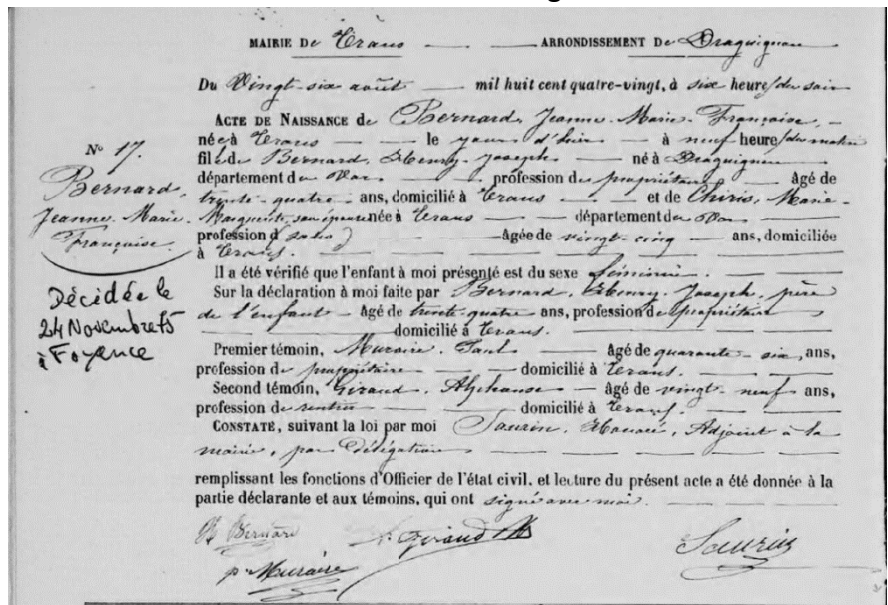 MAIRIE De Trans ARRONDISSEMENT De Draguignan
Du Vingt-six août mil huit cent quatre-vingt, à six heures du soir
ACTE DE NAISSANCE de Bernard, Jeanne-Marie-Françoise,
née à Trans le jour d'hier à neuf heures du matin
fille de Bernard, Henry-Joseph né à Draguignan
département du Var profession de propriétaire âgé de
trente-quatre ans, domicilié à Trans et de Chiris, Marie-
Marguerite, son épouse née à Trans département du Var
profession d( )
âgée de vingt-cinq ans, domiciliée
à Trans.
Il a été vérifié que l'enfant à moi présenté est du sexe féminin.
Sur la déclaration à moi faite par Bernard, Henry-Joseph, père
de l'enfant âgé de trente-quatre ans, profession de propriétaire
domicilié à Trans.
Premier témoin, Muraire, Paul âgé de quarante-six, ans,
profession de propriétaire domicilié à Trans.
Second témoin, Giraud, Alphonse âgé de vingt-neuf ans,
profession de rentier domicilié à Trans.
CONSTATÉ, suivant la loi par moi Saurin, Honoré, Adjoint à la
mairie, par Délégation
remplissant les fonctions d'Officier de l'état civil. et lecture du présent acte a été donnée à la
partie déclarante et aux témoins, qui ont signé avec moi.
H Bernard
A. Giraud
Saurin
p. Muraire
No 17.
Bernard,
Jeanne-Marie-
Françoise.
Décédée le
24 Novembre 75
à Fayence